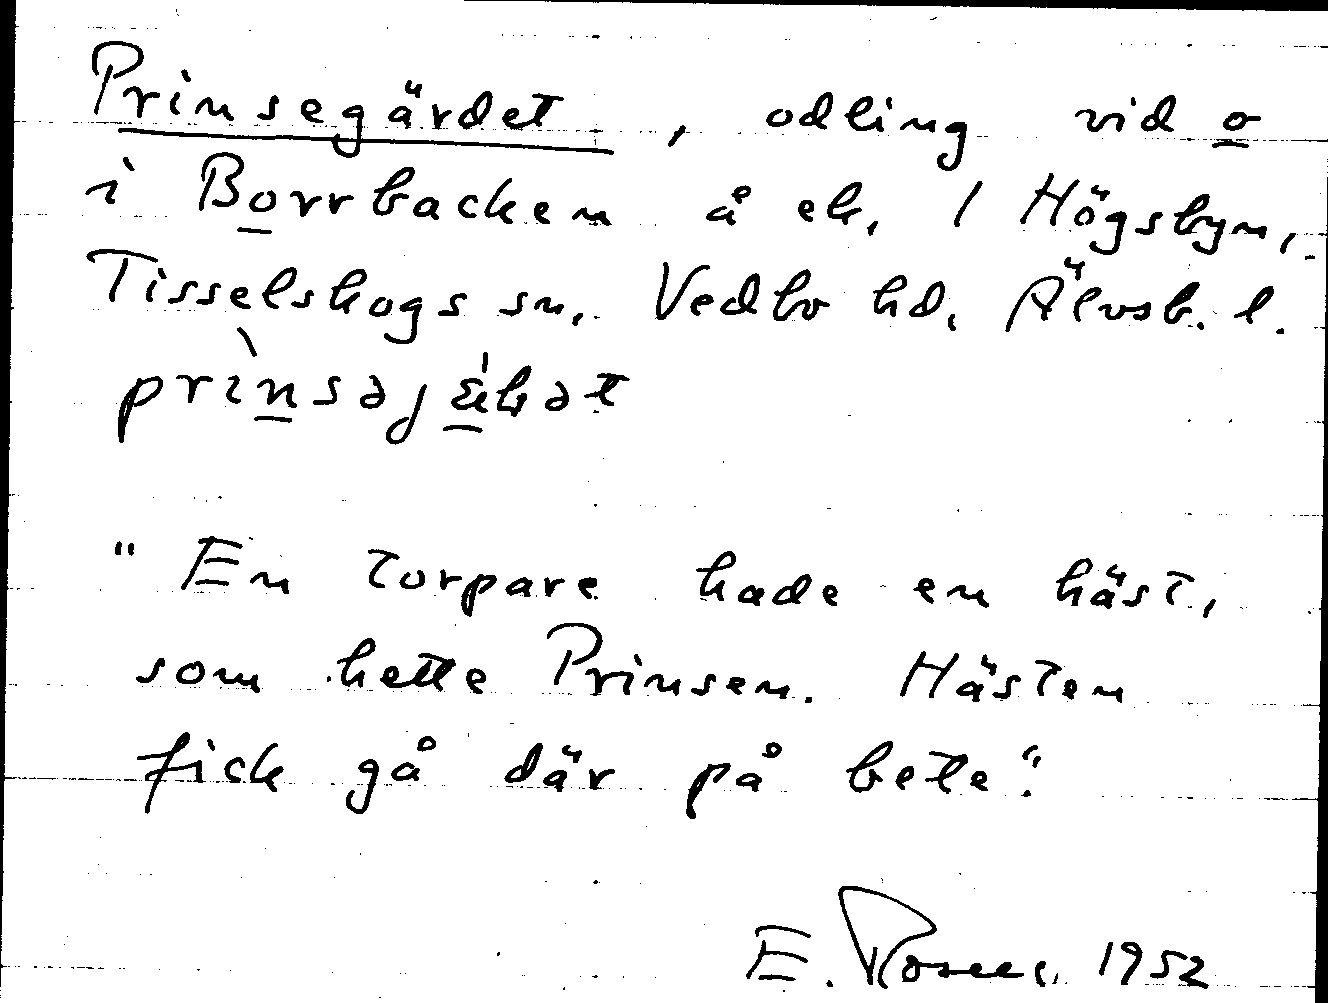 Prinsegärdet, odling vid o
i Borrbacken å ek. 1 Högsbyn,
Tisselskogs sn, Vedbo hd, Älvsb. l.
"En torpare hade en häst,
som hette Prinsen. Hästen
fick gå där på bete."
E. 1952